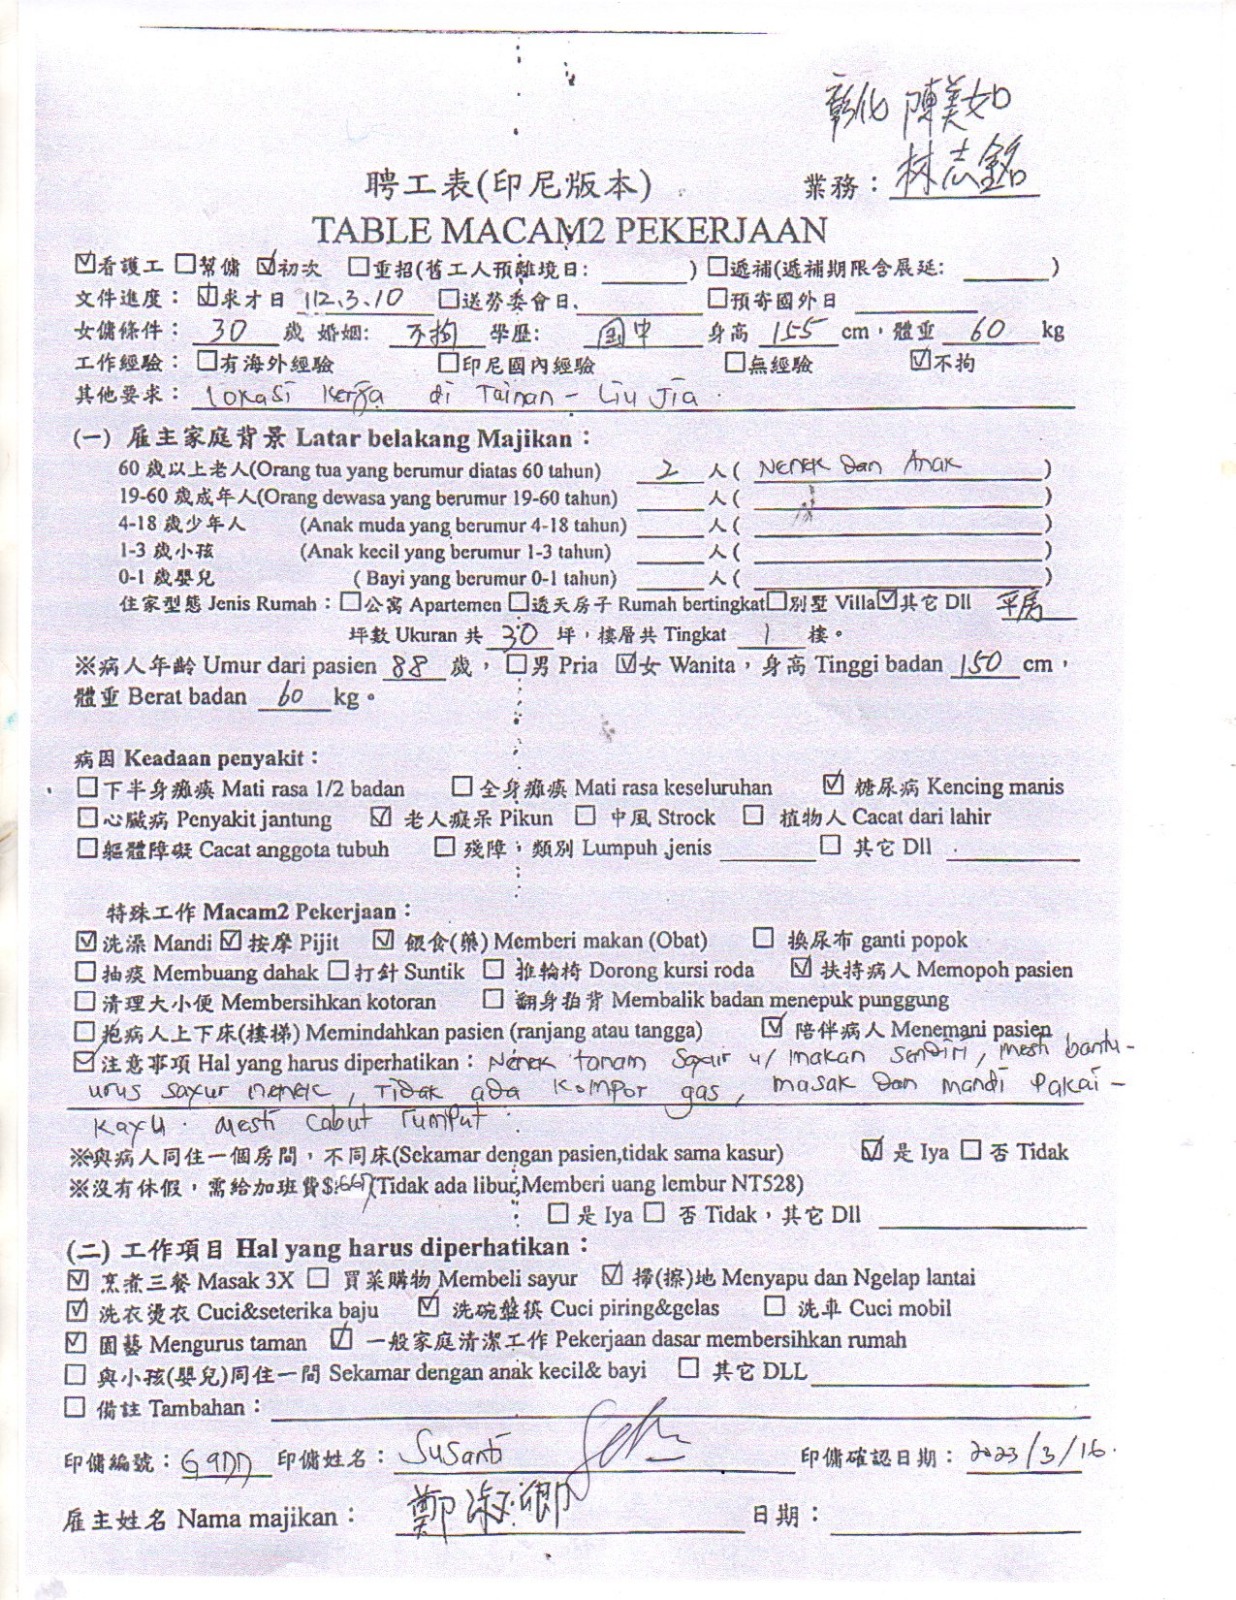 彰化 陳美如
聘工表(印尼版本) 業務：林志銘
TABLE MACAM2 PEKERJAAN
☑看護工 ☐幫傭 ☑初次 ☐重招(舊工人預離境日: ______) ☐遞補(遞補期限含展延: ______)
文件進度：☑求才日 112.3.10 ☐送勞委會日. ☐預寄國外日 ______
女傭條件：30 歲 婚姻: 不拘 學歷: 国中 身高 155 cm，體重 60 kg
工作經驗：☐有海外經驗 ☐印尼國內經驗 ☐無經驗 ☑不拘
其他要求：Lokasi Kerja di Tainan - Liu Jia.
(一) 雇主家庭背景 Latar belakang Majikan：
60 歲以上老人(Orang tua yang berumur diatas 60 tahun) 2 人( Nenek dan Anak )
19-60 歲成年人(Orang dewasa yang berumur 19-60 tahun) ____ 人( ______ )
4-18 歲少年人 (Anak muda yang berumur 4-18 tahun) ____ 人( ______ )
1-3 歲小孩 (Anak kecil yang berumur 1-3 tahun) ____ 人( ______ )
0-1 歲嬰兒 ( Bayi yang berumur 0-1 tahun) ____ 人( ______ )
住家型態 Jenis Rumah：☐公寓 Apartemen ☐透天房子 Rumah bertingkat☐別墅 Villa☑其它 Dll 平房
坪數 Ukuran 共 30 坪，樓層共 Tingkat 1 樓。
※病人年齡 Umur dari pasien 88 歲，☐男 Pria ☑女 Wanita，身高 Tinggi badan 150 cm，
體重 Berat badan 60 kg。
病因 Keadaan penyakit：
☐下半身癱瘓 Mati rasa 1/2 badan ☐全身癱瘓 Mati rasa keseluruhan ☑ 糖尿病 Kencing manis
☐心臟病 Penyakit jantung ☑ 老人癡呆 Pikun ☐ 中風 Strock ☐ 植物人 Cacat dari lahir
☐軀體障礙 Cacat anggota tubuh ☐ 殘障，類別 Lumpuh jenis ______ ☐ 其它 Dll ______
特殊工作 Macam2 Pekerjaan：
☑洗澡 Mandi ☑按摩 Pijit ☑ 餵食(藥) Memberi makan (Obat) ☐ 換尿布 ganti popok
☐抽痰 Membuang dahak ☐打針 Suntik ☐ 推輪椅 Dorong kursi roda ☑ 扶持病人 Memopoh pasien
☐清理大小便 Membersihkan kotoran ☐ 翻身拍背 Membalik badan menepuk punggung
☐抱病人上下床(樓梯) Memindahkan pasien (ranjang atau tangga) ☑ 陪伴病人 Menemani pasien
☑注意事項 Hal yang harus diperhatikan：Nenek tanam sayur u/ makan sendiri, mesti bantu-
urus sayur nenek, Tidak ada Kompor gas, masak dan mandi pakai-
kayu. mesti cabut rumput.
※與病人同住一個房間，不同床(Sekamar dengan pasien,tidak sama kasur) ☑ 是 Iya ☐ 否 Tidak
※沒有休假，需給加班費$:667(Tidak ada libur,Memberi uang lembur NT528)
☐ 是 Iya ☐ 否 Tidak，其它 Dll ______
(二) 工作項目 Hal yang harus diperhatikan：
☑ 烹煮三餐 Masak 3X ☐ 買菜購物 Membeli sayur ☑ 掃(擦)地 Menyapu dan Ngelap lantai
☑ 洗衣燙衣 Cuci&seterika baju ☑ 洗碗盤筷 Cuci piring&gelas ☐ 洗車 Cuci mobil
☑ 園藝 Mengurus taman ☑ 一般家庭清潔工作 Pekerjaan dasar membersihkan rumah
☐ 與小孩(嬰兒)同住一間 Sekamar dengan anak kecil& bayi ☐ 其它 DLL ______
☐ 備註 Tambahan：______
印傭編號： 印傭姓名：Susanti 印傭確認日期：2023/3/16.
雇主姓名 Nama majikan：鄭淑卿 日期：______